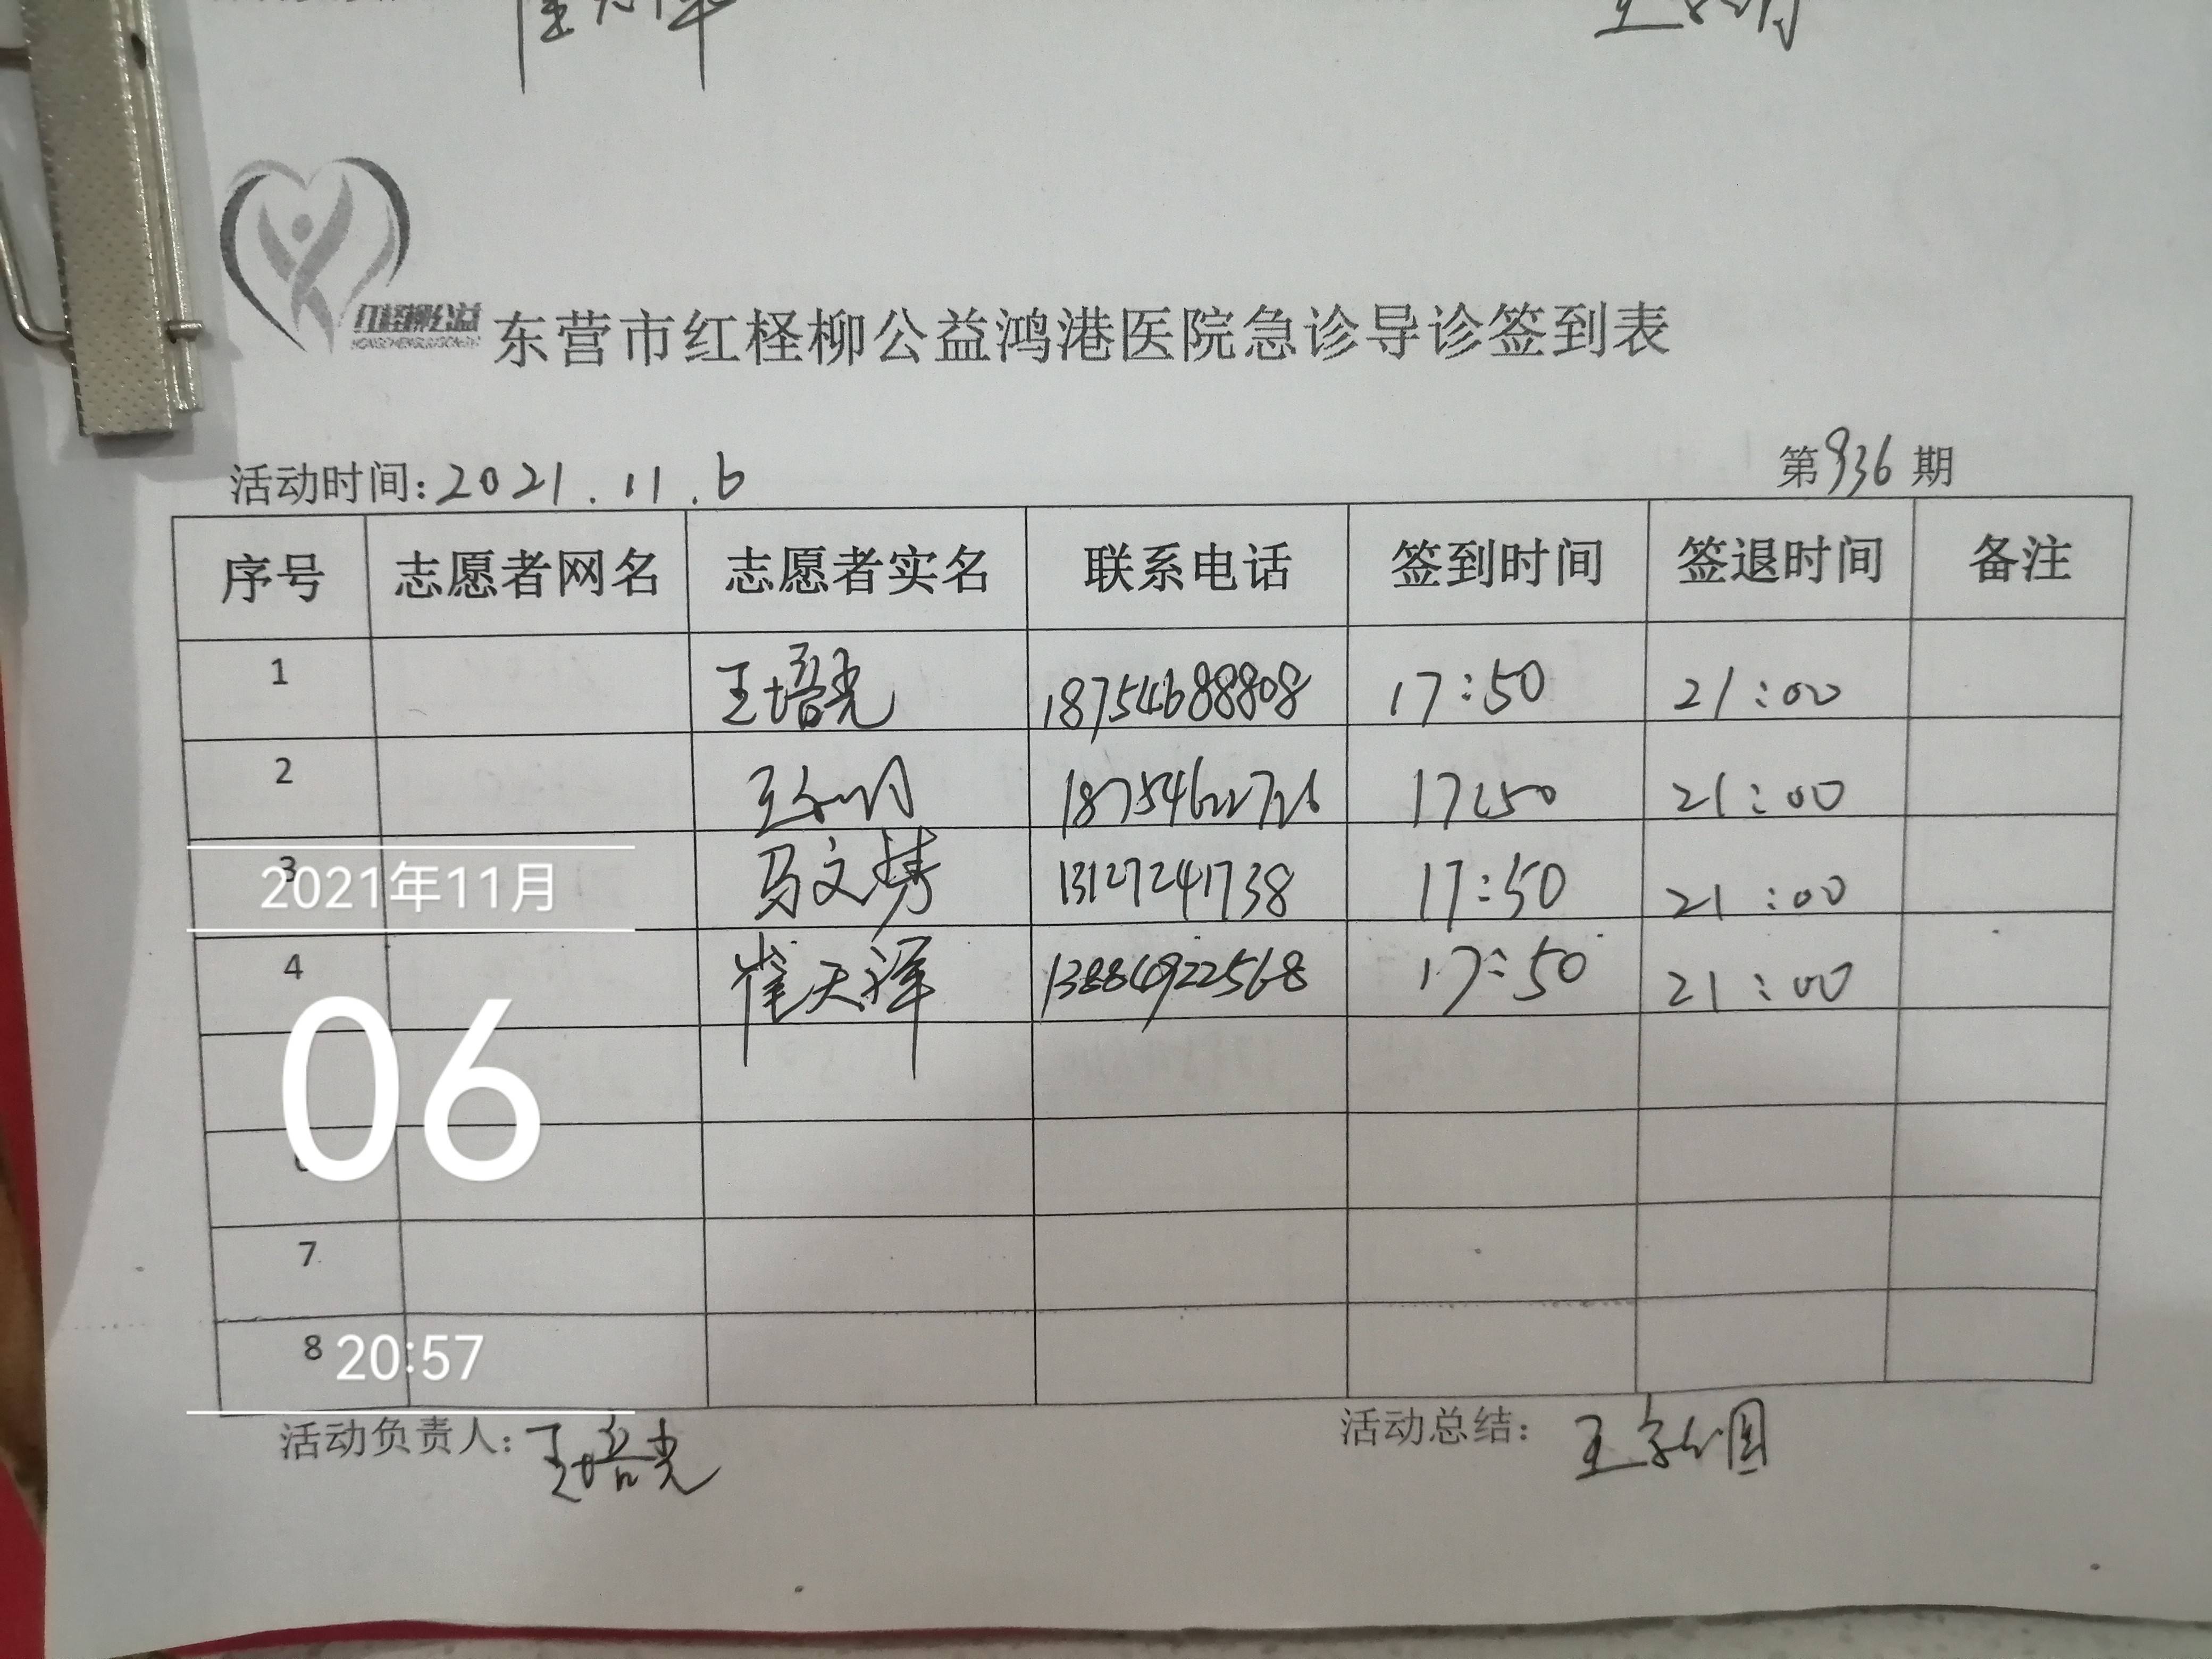 红柽柳公益
东营市红柽柳公益鸿港医院急诊导诊签到表
活动时间:2021.11.6 第936期
序号 志愿者网名 志愿者实名 联系电话 签到时间 签退时间 备注
1 王培光 18754688808 17:50 21:00
2 18754622726 17:50 21:00
3 马文涛 13127241738 17:50 21:00
4 崔天泽 13884922568 17:50 21:00
6
7
8
活动负责人:王培光 活动总结:
2021年11月
06
20:57